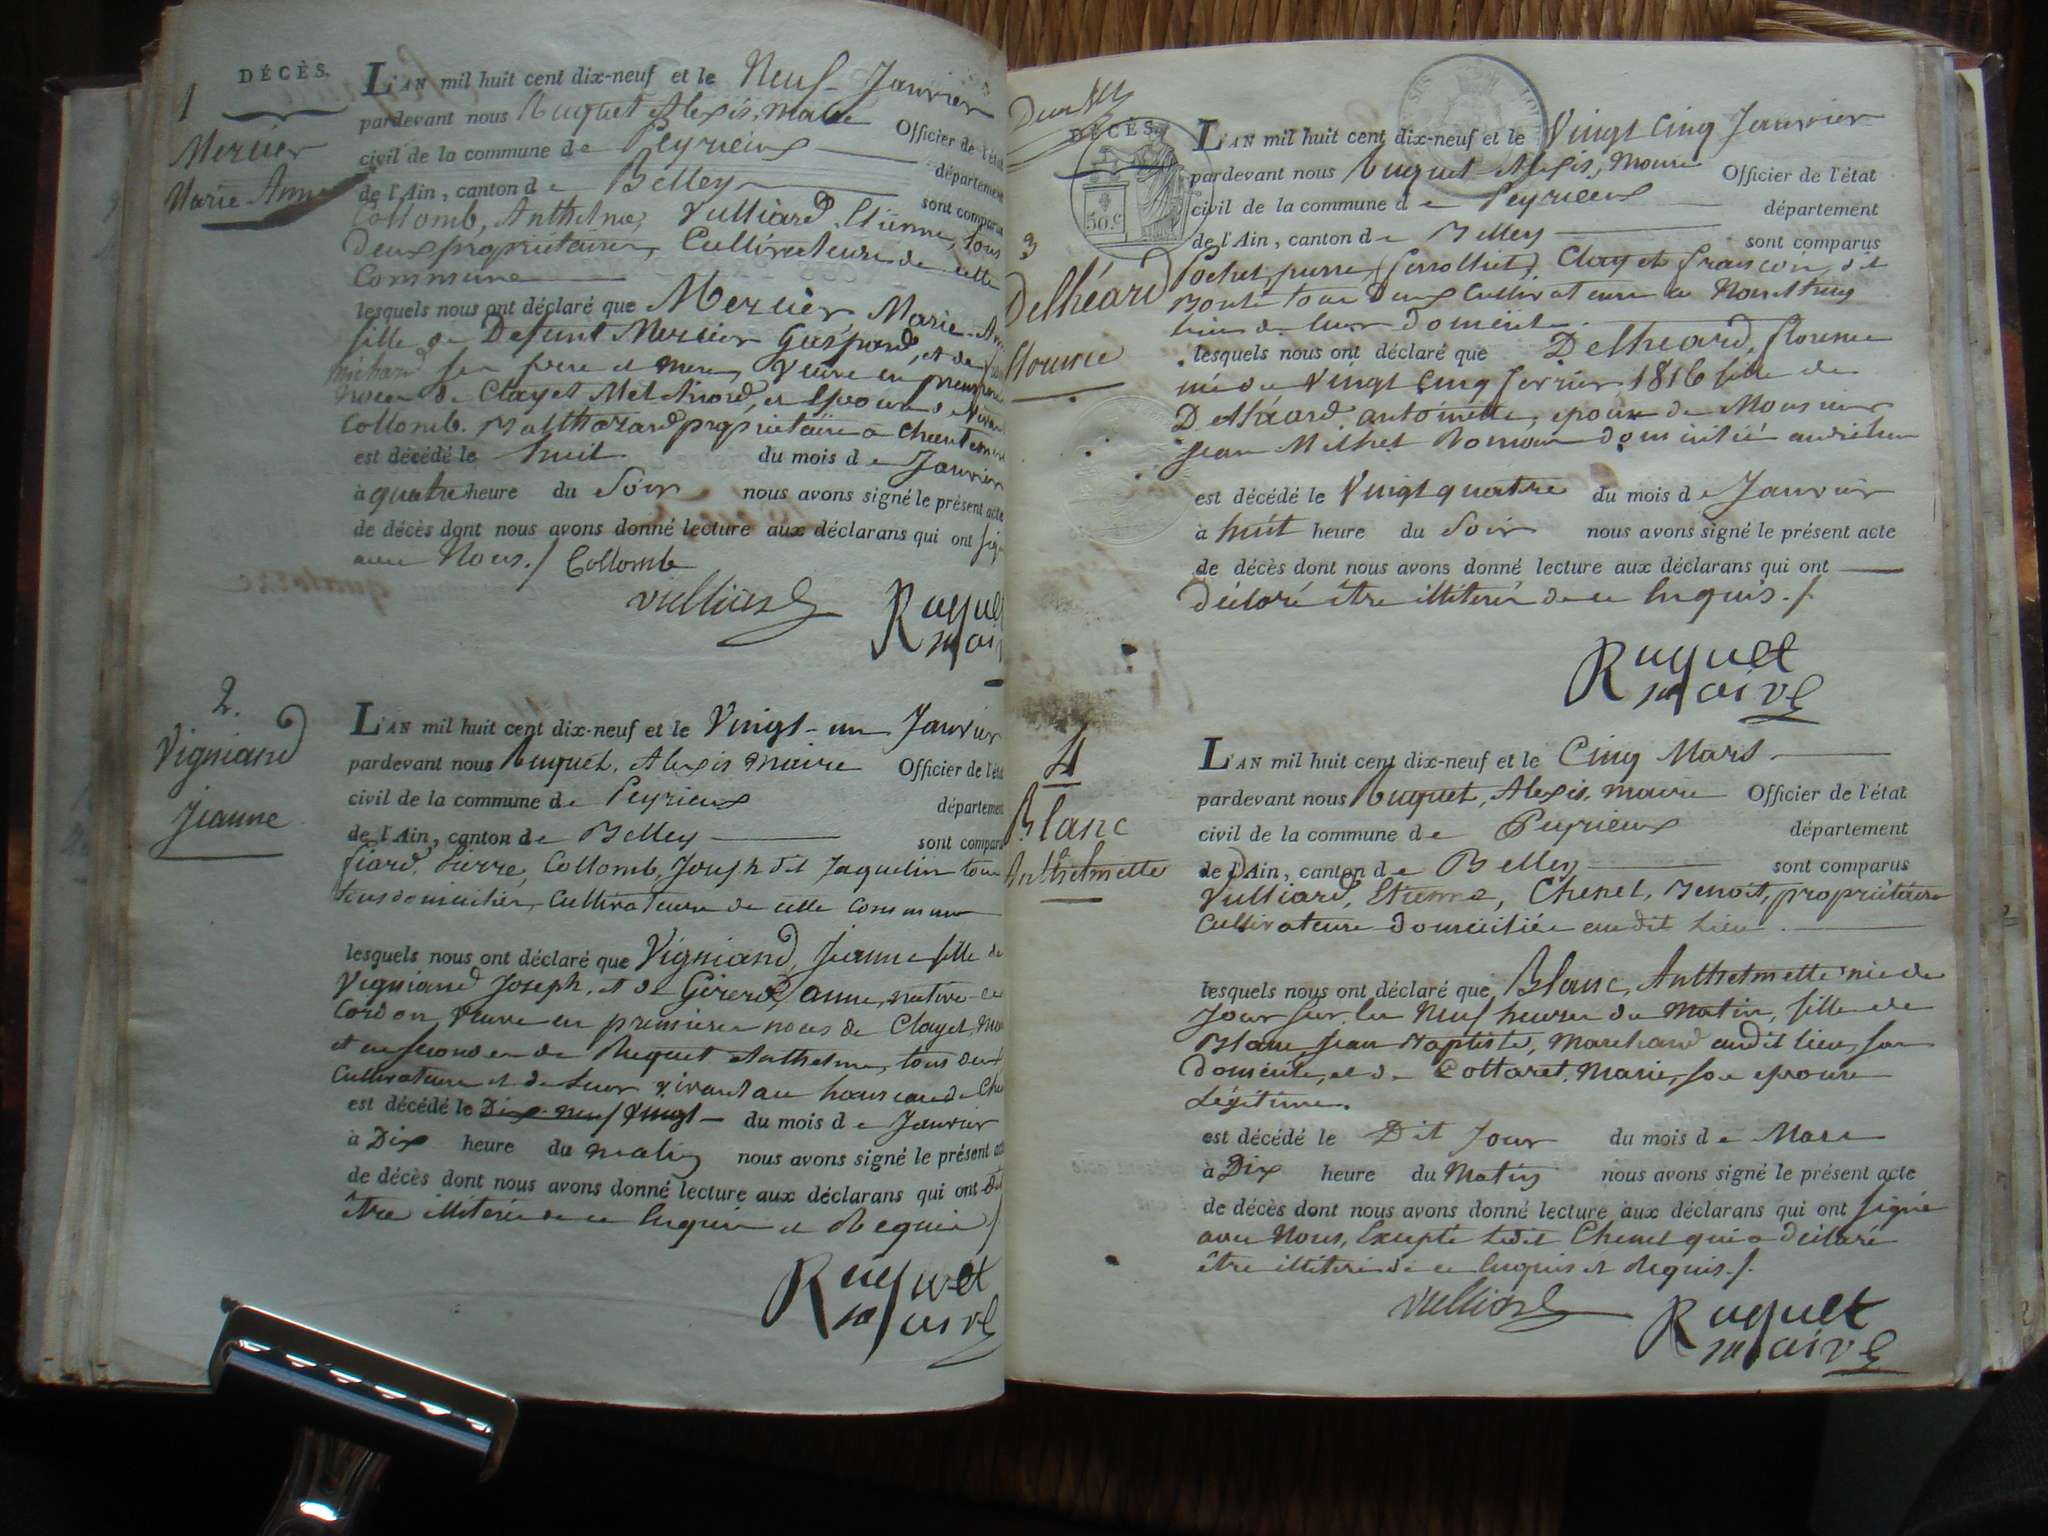 1
DÉCÈS.
Mercier
Marie Anne
L'AN mil huit cent dix-neuf et le Neuf Janvier
pardevant nous Ruquet Alexis, maire Officier de l'état
civil de la commune de Peyrieux département
de l'Ain, canton de Belley sont comparu
Collomb, Anthelme, Vulliard, Etienne, tous
Deux propriétaires, Cultivateurs de cette
Commune
lesquels nous ont déclaré que Mercier Marie
fille de Defunt Mercier Gaspard, et de
michaud ses père et mere, Veuve en premiere
noces de Clayet Melchiord, et Epouse de
Collomb. Balthazard propriétaire a
est décédé le huit du mois de Janvier
à quatre heure du Soir nous avons signé le présent acte
de décès dont nous avons donné lecture aux déclarans qui ont signé
avec Nous./ Collomb
vulliard Ruquet
maire
2.
Vigniand
Jeanne
L'AN mil huit cent dix-neuf et le Vingt-un Janvier
pardevant nous Ruquet, Alexis maire Officier de l'état
civil de la commune de Peyrieux département
de l'Ain, canton de Belley sont compara
fiard, Pierre, Collomb, Joseph dit Jaquelin tous
tous domiciliés, Cultivateurs de cette commune
lesquels nous ont déclaré que Vigniand, Jeanne fille de
Vigniand Joseph, et de Girerd, anne, native de
Cordon, Veuve en premieres noces de Clayet,
et en secondes de Ruquet Anthelme, tous deux
Cultivateurs et de leur vivant au hameau de
est décédé le Dix-neuf Vingt du mois de Janvier
à Dix heure du matin nous avons signé le présent
de décès dont nous avons donné lecture aux déclarans qui ont dit
être illiterés de ce Enquis et Requis /
Ruquet
maire
DÉCÈS.
50.c
3
Delhéard
florence
L'AN mil huit cent dix-neuf et le Vingt Cinq Janvier
pardevant nous Ruquet Alexis, Maire Officier de l'état
civil de la commune de Peyrieux département
de l'Ain, canton de Belley sont comparus
Pochet pierre, Clayet françois, dit
tous Deux Cultivateurs
lieu de leur Domicile
lesquels nous ont déclaré que Delheard, florence
née du Vingt Cinq fevrier 1816 fille de
Delhéard antoinette, epouse de Monsieur
Jean Michel Romain domicilié audit lieu
est décédé le Vingt quatre du mois de Janvier
à huit heure du Soir nous avons signé le présent acte
de décès dont nous avons donné lecture aux déclarans qui ont
Déclaré être illiterés de ce Enquis./.
Ruquet
maire
4
Blanc
Anthelmette
L'AN mil huit cent dix-neuf et le Cinq Mars
pardevant nous Ruquet, Alexis, maire Officier de l'état
civil de la commune de Peyrieux département
de l'Ain, canton de Belley sont comparus
Vulliard, Etienne, Chenet, Benoit, propriétaires
Cultivateurs domiciliés audit Lieu
lesquels nous ont déclaré que Blanc, Anthelmette née de
Jour sur les Neuf heures du Matin, fille de
Blanc Jean Baptiste, Marchand audit lieu, son
Domicile, et de Cottaret. Marie, son epouse
Légitime.
est décédé le Dit Jour du mois de Mars
à Dix heure du Matin nous avons signé le présent acte
de décès dont nous avons donné lecture aux déclarans qui ont signé
avec Nous, Excepté ledit Chenet qui a déclaré
être illiteré de ce Enquis et Requis./.
vulliard Ruquet
maire